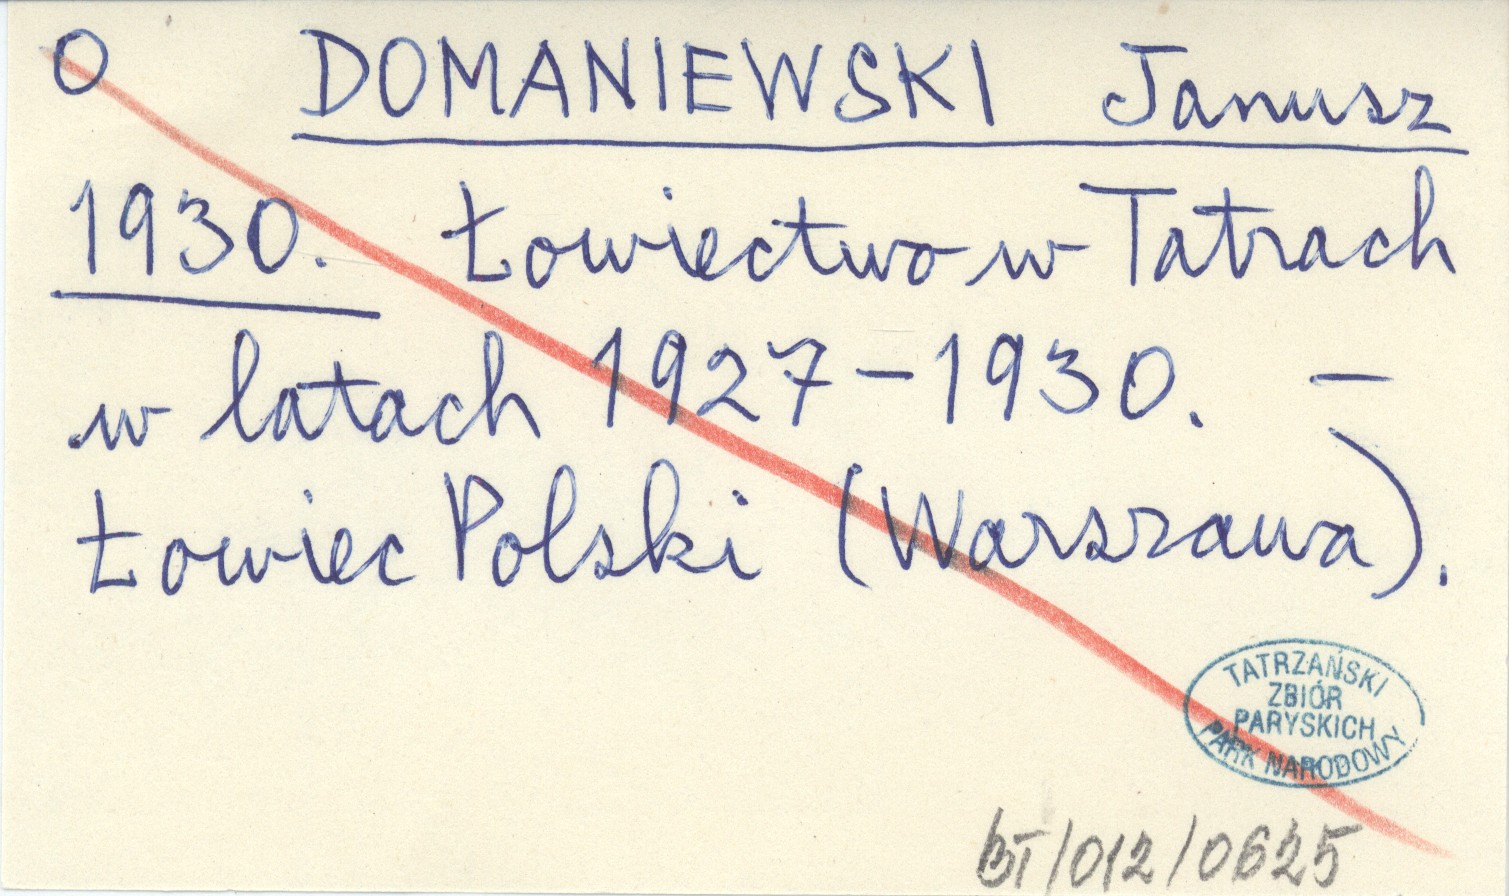 O DOMANIEWSKI Janusz
1930. Łowiectwo w Tatrach
w latach 1927-1930. –
Łowiec Polski (Warszawa).
TATRZAŃSKI
ZBIÓR
PARYSKICH
PARK NARODOWY
BT/012/0625